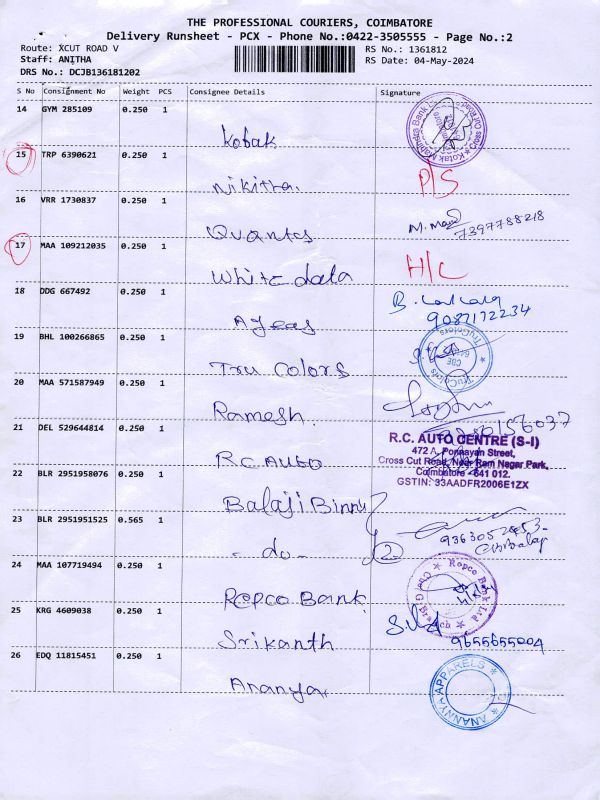 THE PROFESSIONAL COURIERS, COIMBATORE
Delivery Runsheet - PCX - Phone No.:0422-3505555 - Page No.:2
Route: XCUT ROAD V
RS No.: 1361812
Staff: ANITHA
RS Date: 04-May-2024
DRS No.: DCJB136181202
S No Consignment No Weight PCS Consignee Details Signature
14 GYM 285109 0.250 1 Kotak
15 TRP 6390621 0.250 1 Nikitha. P/S
16 VRR 1730837 0.250 1 Quantes 7397788218
17 MAA 109212035 0.250 1 White data H/C
18 DDG 667492 0.250 1 9087172234
19 BHL 100266865 0.250 1 Tru Colors TruColors
20 MAA 571587949 0.250 1 Ramesh.
21 DEL 529644814 0.250 1 RC AUTO
R.C. AUTO CENTRE (S-I)
472 A, Ponnayan Street,
Cross Cut Road, Near Ram Nagar Park,
Coimbatore - 641 012.
GSTIN: 33AADFR2006E1ZX
22 BLR 2951958076 0.250 1 Balaji
23 BLR 2951951525 0.565 1 - do - 2
24 MAA 107719494 0.250 1 Repco Bank Repco Bank Ltd
25 KRG 4609038 0.250 1 Srikanth 9655655004
26 EDQ 11815451 0.250 1 Ananya ANANNYA APPARELS